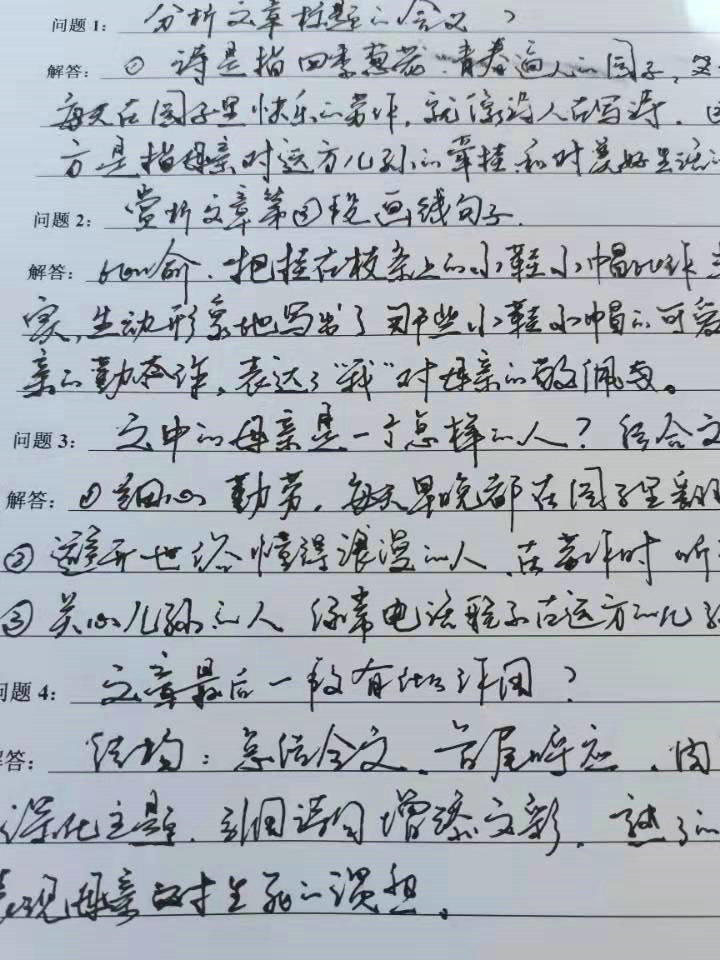 问题1: 分析文章标题的含义？
解答: ①诗是指四季葱茏、青春逼人的园子，
每天在园子里快乐的劳作，就像诗人在写诗。
方是指母亲对远方儿孙的牵挂和对美好生活
问题2: 赏析文章第④段画线句子.
解答: 比喻. 把挂在枝条上的小鞋小帽比作
实，生动形象地写出了那些小鞋小帽的可爱
亲的勤劳，表达了“我”对母亲的敬佩。
问题3: 文中的母亲是一个怎样的人？结合文
解答: ①细心勤劳，每天早晚都在园子里
②避开世俗懂得浪漫的人 在劳作时听
③关心儿孙的人 经常电话 在远方的儿孙
问题4: 文章最后一段有何作用？
解答: 结构：总结全文、首尾呼应，内
深化主题，引用诗句增添文彩，
表现母亲对生活的